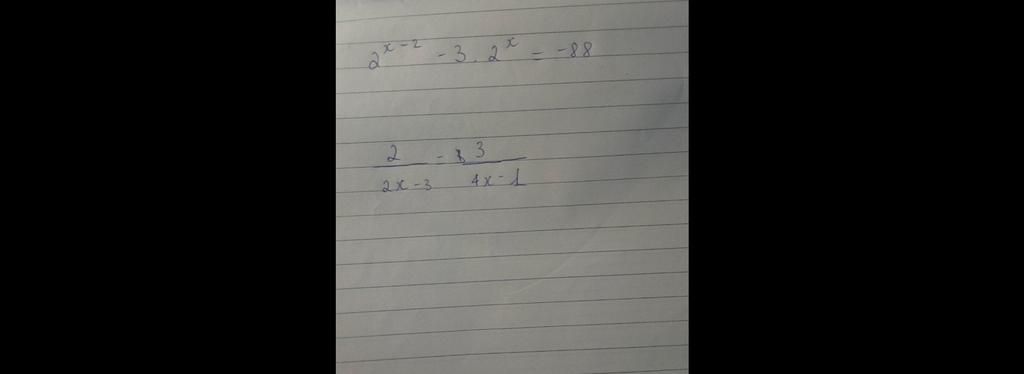 2^{x-2} - 3 . 2^x = -88
\frac{2}{2x-3} = \frac{3}{4x-1}